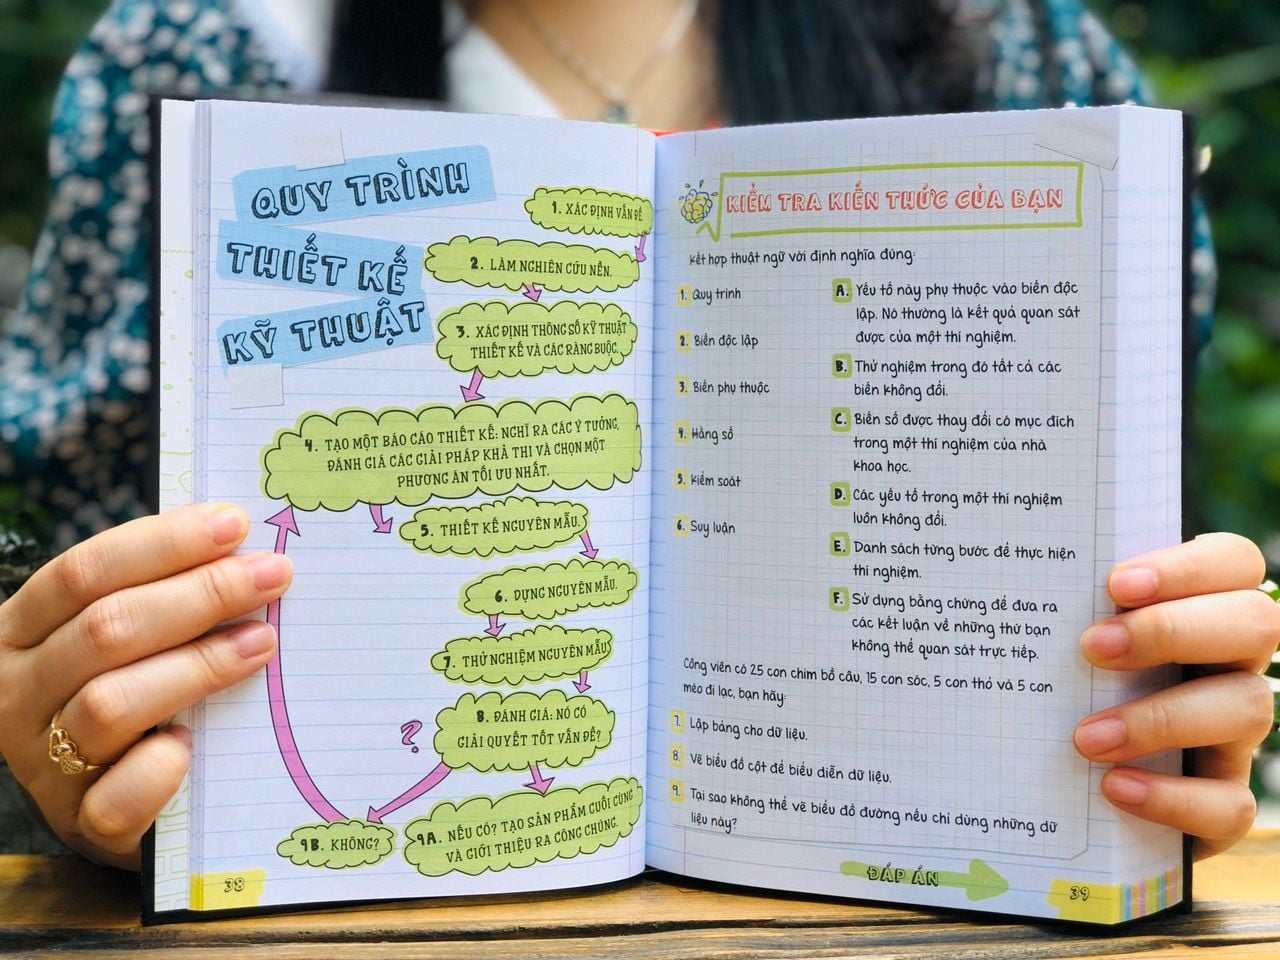 QUY TRÌNH
THIẾT KẾ
KỸ THUẬT
1. XÁC ĐỊNH VẤN ĐỀ.
2. LÀM NGHIÊN CỨU NỀN.
3. XÁC ĐỊNH THÔNG SỐ KỸ THUẬT
THIẾT KẾ VÀ CÁC RÀNG BUỘC.
4. TẠO MỘT BÁO CÁO THIẾT KẾ: NGHĨ RA CÁC Ý TƯỞNG,
ĐÁNH GIÁ CÁC GIẢI PHÁP KHẢ THI VÀ CHỌN MỘT
PHƯƠNG ÁN TỐI ƯU NHẤT.
5. THIẾT KẾ NGUYÊN MẪU.
6. DỰNG NGUYÊN MẪU.
7. THỬ NGHIỆM NGUYÊN MẪU
8. ĐÁNH GIÁ: NÓ CÓ
GIẢI QUYẾT TỐT VẤN ĐỀ?
?
9A. NẾU CÓ? TẠO SẢN PHẨM CUỐI CÙNG
VÀ GIỚI THIỆU RA CÔNG CHÚNG.
9B. KHÔNG?
38
KIỂM TRA KIẾN THỨC CỦA BẠN
Kết hợp thuật ngữ với định nghĩa đúng:
1. Quy trình
2. Biến độc lập
3. Biến phụ thuộc
4. Hằng số
5. Kiểm soát
6. Suy luận
A. Yếu tố này phụ thuộc vào biến độc
lập. Nó thường là kết quả quan sát
được của một thí nghiệm.
B. Thử nghiệm trong đó tất cả các
biến không đổi.
C. Biến số được thay đổi có mục đích
trong một thí nghiệm của nhà
khoa học.
D. Các yếu tố trong một thí nghiệm
luôn không đổi.
E. Danh sách từng bước để thực hiện
thí nghiệm.
F. Sử dụng bằng chứng để đưa ra
các kết luận về những thứ bạn
không thể quan sát trực tiếp.
Công viên có 25 con chim bồ câu, 15 con sóc, 5 con thỏ và 5 con
mèo đi lạc, bạn hãy:
7. Lập bảng cho dữ liệu.
8. Vẽ biểu đồ cột để biểu diễn dữ liệu.
9. Tại sao không thể vẽ biểu đồ đường nếu chỉ dùng những dữ
liệu này?
ĐÁP ÁN
39